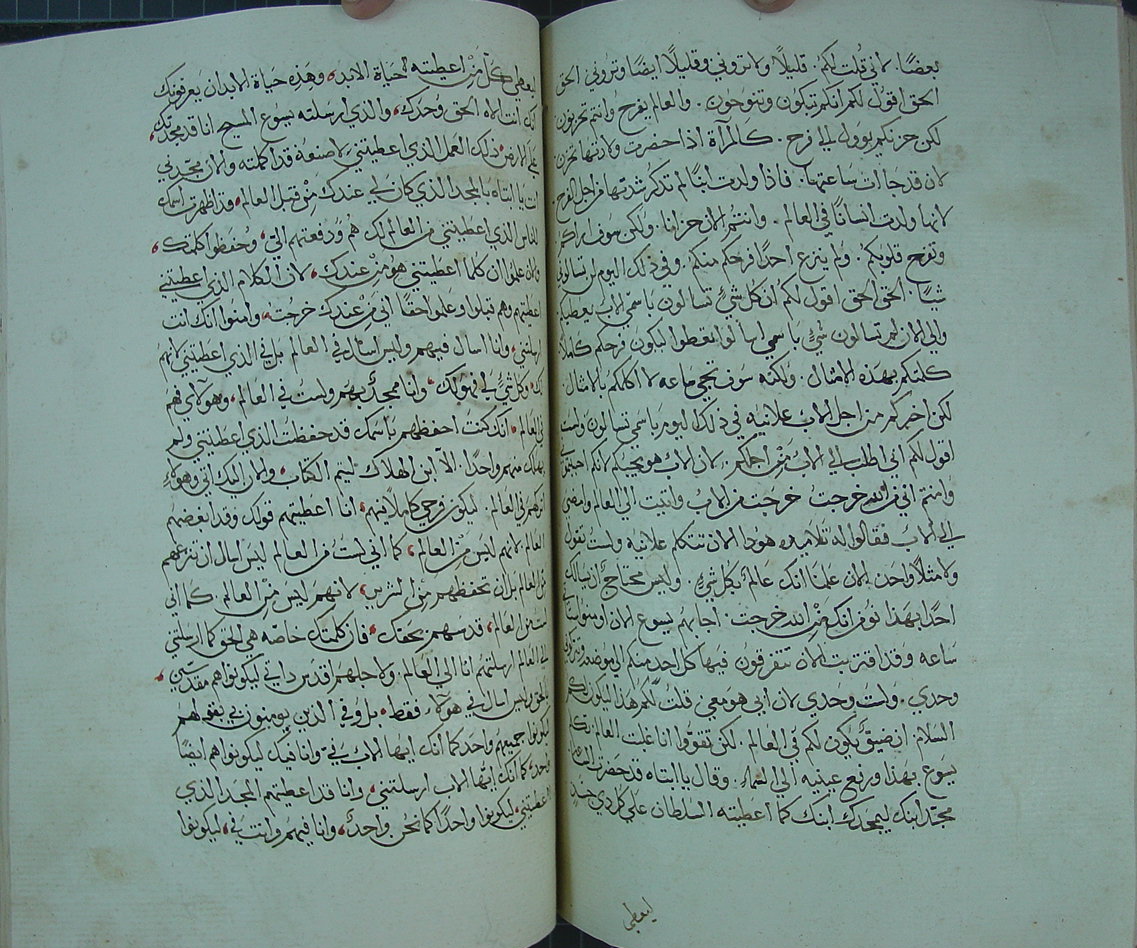 بعضًا لاني قلت لكم. قليلاً ولا تروني وقليلاً ايضًا وتروني الحق
الحق اقول لكم انكم تبكون وتنوحون. والعالم يفرح وانتم تحزنون
لكن حزنكم يوول الي فرح. كالمرآة اذا حضرت ولادتها تحزن
لان قد جات ساعتها. فاذا ولدت ابنًا لم تذكر شدتها من اجل الفرح
لانها ولدت انسانًا في العالم. وانتم الان حزانا. ولكن سوف اراكم
وتفرح قلوبكم. ولم ينزع احدًا فرحكم منكم. وفي ذلك اليوم لن تسالوني
شيًا. الحق الحق اقول لكم ان كل شيٍ تسالون باسمي الاب يعطيكم
والي الان لم تسالون شيٍ باسمي اسألوا تعطوا ليكون فرحكم كاملاً
كلمتكم بهذه الامثال. ولكنه سوف تجي ساعه لا اكلمكم بالامثال
لكن اخبركم من اجل الاب علانيه في ذلك اليوم باسمي تسالون ولست
اقول لكم اني اطلب الي الاب من اجلكم. لان الاب هو يحبكم لانكم احببتموني
وامنتم اني من الله خرجت خرجت من الاب واتيت الي العالم وامضي
الي الاب فقالوا له تلاميذه هوذا الان تتكلم علانيه ولست تقول
ولا مثلاً واحدًا. الان علمنا انك عالم بكل شيٍ. وليس محتاج ان يسالك
احدًا بهذا نومن انك من الله خرجت. اجابهم يسوع الان اومنوا ستاتي
ساعه وقد اقتربت الان تتفرقون فيها كل احد منكم الي موضعه وتتركوني
وحدي. ولست وحدي لان ابي هو معي قلت لكم هذا ليكون لكم
السلام ان ضيقٌ يكون لكم في العالم. لكن تقووا انا غلبت العالم. تكلم
يسوع بهذا ورفع عينيه الي السماء. وقال يا ابتاه قد حضرت الساعه
مجد ابنك ليمجدك ابنك كما اعطيته السلطان علي كل ذي جسدٍ
ليعطي
ليعطي كل من اعطيته حياة الابد، وهذه حياة الابد ان يعرفونك
انك انت الاه الحق وحدك، والذي ارسلته يسوع المسيح انا قد مجدتك،
علي الارض، ذلك العمل الذي اعطيتني لاصنعه قد اكملته والان مجدني
انت يا ابتاه بالمجد الذي كان لي عندك من قبل العالم، قد اظهرت اسمك
للناس الذي اعطيتني من العالم لك هم ودفعتهم الي، وحفظوا كلمتك،
والان علموا ان كلما اعطيتني هو من عندك، لان الكلام الذي اعطيتني
اعطيتهم وهم قبلوا وعلموا حقًا اني من عندك خرجت، وامنوا انك انت
ارسلتني، وانا اسال فيهم وليس اسال في العالم بل في الذي اعطيتني لانهم
لك، وكل شيٍ لي فهو لك، وانا ممجدٌ بهم ولست في العالم، وهولاي هم
في العالم، انك كنت احفظهم باسمك قد حفظت الذي اعطيتني ولم
يهلك منهم واحدًا. الا ابن الهلاك ليتم الكتاب، والان اليك اتي وهولاء
اتركهم في العالم. ليكون فرحي كاملاً فيهم، انا اعطيتهم قولك وقد ابغضهم
العالم. لانهم ليس من العالم، كما اني لست من العالم ليس اسال ان تنزعهم
من العالم بل ان تحفظهم من الشرير، لانهم ليس من العالم. كما اني
لست من العالم، قدسهم بحقك، فان كلمتك خاصه هي الحق كما ارسلتني
الي العالم ارسلتهم انا الي العالم. ولاجلهم اقدس ذاتي ليكونوا هم مقدسين،
بالحق وليس اسال في هولاء فقط، بل وفي الذين يومنون بي بقولهم
ليكونوا جميعهم واحد كما انك ايها الاب بي وانا فيك ليكونوا هم ايضًا
واحدٌ كما انك ايها الاب ارسلتني، وانا قد اعطيتهم المجد الذي
اعطيتني، ليكونوا واحدًا كما نحن واحدٌ، وانا فيهم وانت في، ليكونوا